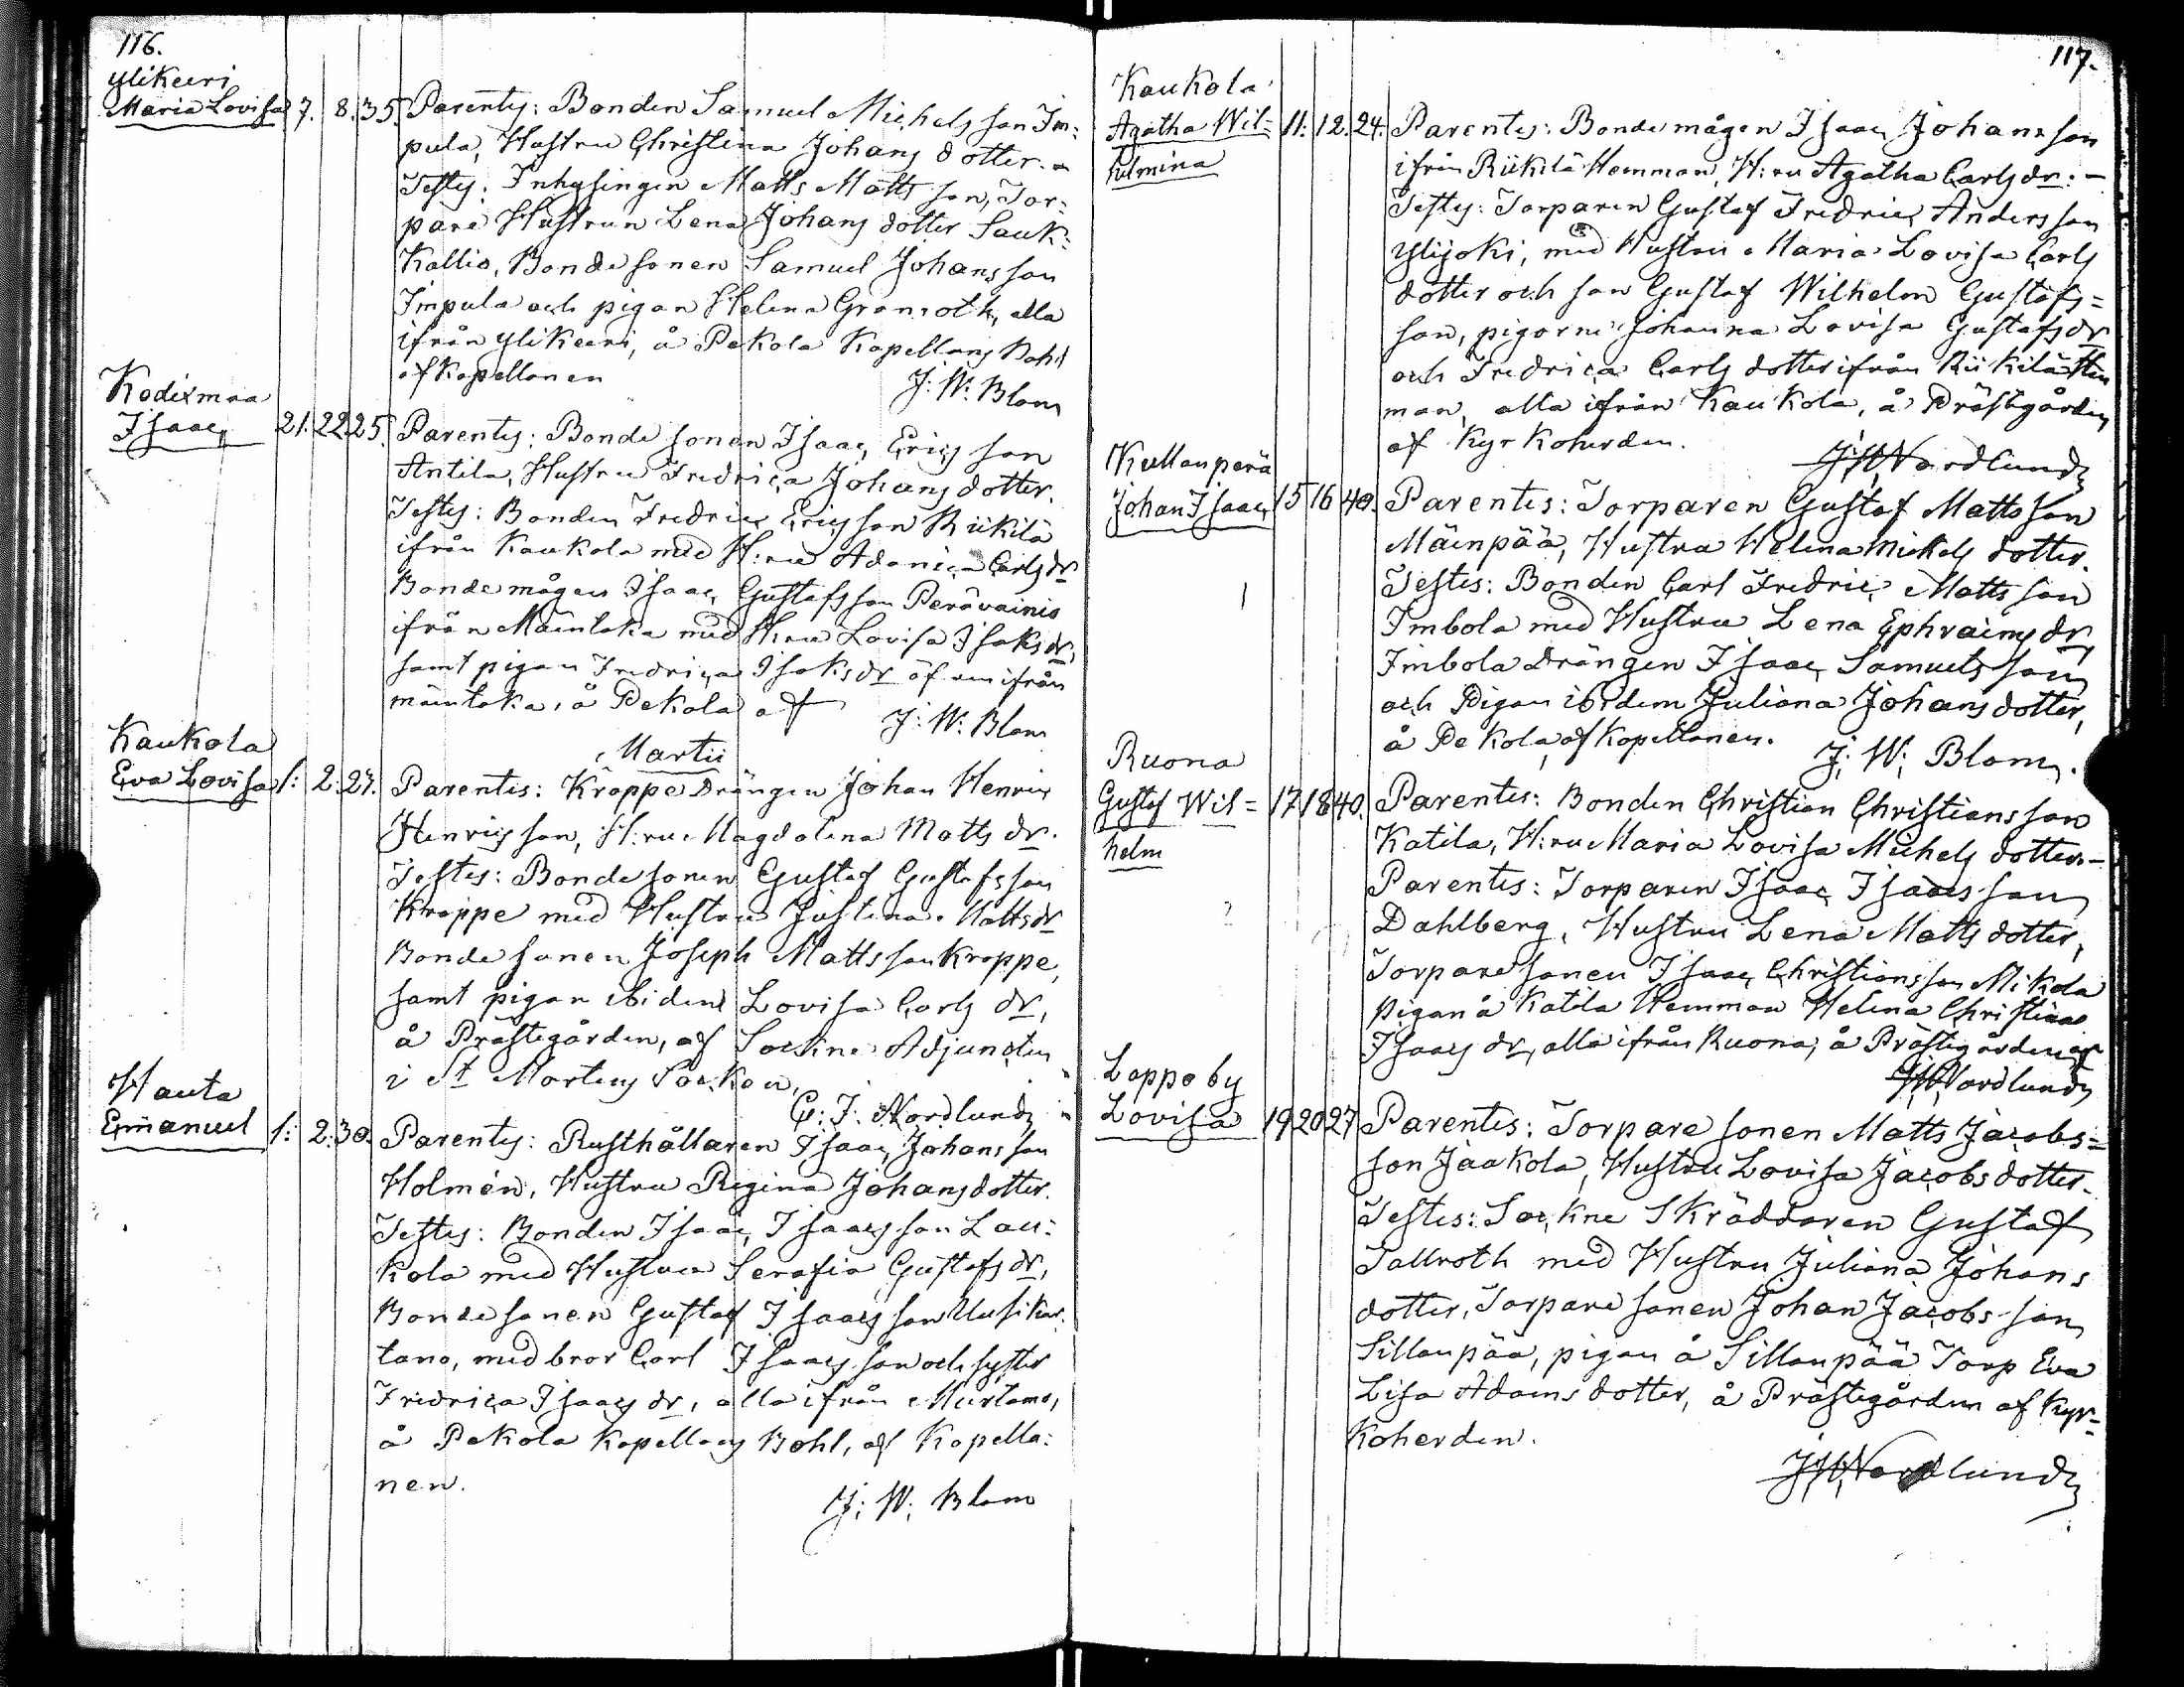 116.
Ylikeeri
Maria Lovisa 7. 8. 35. Parentes: Bonden Samuel Michelsson Im=
pula, Hustru Christina Johansdotter. -
Testes: Inhysingen Matts Mattsson, Tor=
pare Hustrun Lena Johansdotter Sauk=
Kallio, Bondesonen Samuel Johansson
Impula och pigan Helena Granroth, alla
ifrån Ylikeeri, å Pekola Kapellans Bohl
af Kapellanen
J: W: Blom
Kodixmaa
Isaac 21. 22. 25. Parentes: Bondesonen Isaac Ericsson
Antila, Hustru Fredrica Johansdotter.
Testes: Bonden Fredric Ericsson Riikilä
ifrån Kaukola med H:ru Adonica Carlsdr
Bondemågen Isaac Gustafsson Perävainio
ifrån Mäintaka med H:ru Lovisa Isaksdr,
samt pigan Fredrica Isaksdr äfven ifrån
mäintaka, å Pekola af
J: W: Blom
Martii
Kaukola
Eva Lovisa 1: 2. 27. Parentes: Kroppe Drängen Johan Henric
Henricsson, H:ru Magdalena Mattsdr.
Testes: Bondesonen Gustaf Gustafsson
Kroppe med Hustru Justina Mattsdr
Bondesonen Joseph Mattsson Kroppe,
samt pigan ibidem Lovisa Carlsdr,
å Prästegården, af Sockne Adjuncten
i St Martens Socken,
C: J: Nordlund
Hauta
Emanuel 1: 2. 30. Parentes: Rusthållaren Isaac Johansson
Holmén, Hustru Regina Johansdotter.
Testes: Bonden Isaac Isaacsson Lau=
kola med Hustru Serafia Gustafsdr,
Bondesonen Gustaf Isaacsson Uusikar=
tano, med bror Carl Isaacsson och syster
Fredrica Isaacsdr, alla ifrån Murtamo,
å Pekola Kapellans Bohl, af Kapella=
nen.
J: W: Blom
117.
Kaukola
Agatha Wil= 11. 12. 24. Parentes: Bondemågen Isaac Johansson
helmina
ifrån Riikilä Hemman, H:ru Agatha Carlsdr. -
Testes: Torparen Gustaf Fredric Andersson
Ylijoki, med Hustru Maria Lovisa Carls
dotter och son Gustaf Wilhelm Gustafs=
son, pigorne Johanna Lovisa Gustafsdr
och Fredrica Carlsdotter ifrån Riikilä Hem
man, alla ifrån Kaukola, å Prästgården
af Kyrkoherden.
J: W: Nordlund
Kullanperä
Johan Isaac 15 16 40. Parentes: Torparen Gustaf Mattsson
Mäenpää, Hustru Helena Mickelsdotter.
Testes: Bonden Carl Fredric Mattsson
Imbola med Hustru Lena Ephraimsdr,
Imbola Drängen Isaac Samuelsson
och Pigan ibidem Juliana Johansdotter,
å Pekola, af Kapellanen.
J: W: Blom.
Ruona
Gustaf Wil= 17 18 40. Parentes: Bonden Christian Christiansson
helm
Katila, H:ru Maria Lovisa Michelsdotter -
Parentes: Torparen Isaac Isaacsson
Dahlberg, Hustru Lena Mattsdotter,
Torparesonen Isaac Christiansson Mikola
Pigan å Katila Hemman Helena Christina
Isaacsdr, alla ifrån Ruona, å Prästegården af
J: W: Nordlund
Loppo by
Lovisa 19 20 27 Parentes: Torparesonen Matts Jacobs=
son Jaakola, Hustru Lovisa Jacobsdotter.
Testes: Sockne Skräddaren Gustaf
Tallroth med Hustru Juliana Johans
dotter, Torparesonen Johan Jacobsson
Sillanpää, pigan å Sillanpää Torp Eva
Lisa Adamsdotter, å Prästegården af Kyr=
koherden.
J: W: Nordlund